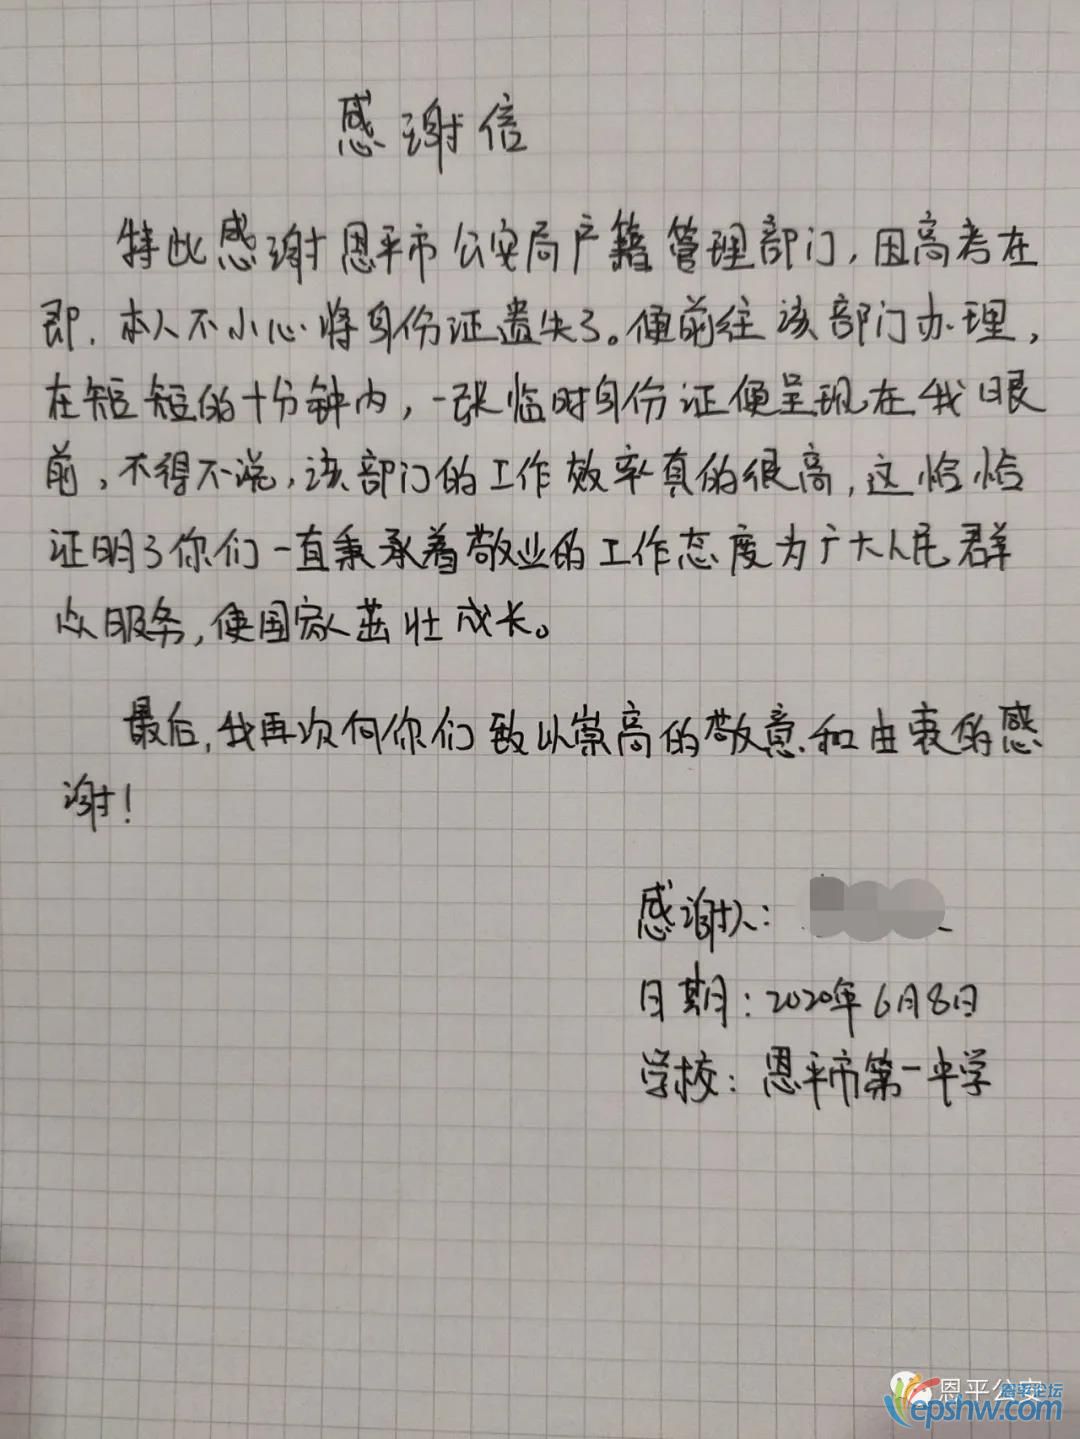 感谢信
特此感谢恩平市公安局户籍管理部门，因高考在
即，本人不小心将身份证遗失了。便前往该部门办理，
在短短的十分钟内，一张临时身份证便呈现在我眼
前，不得不说，该部门的工作效率真的很高，这恰恰
证明了你们一直秉承着敬业的工作态度为广大人民群
众服务，使国家茁壮成长。
最后，我再次向你们致以崇高的敬意和由衷的感
谢！
感谢人：
日期：2020年6月8日
学校：恩平市第一中学
恩平公安
恩平论坛
epshw.com